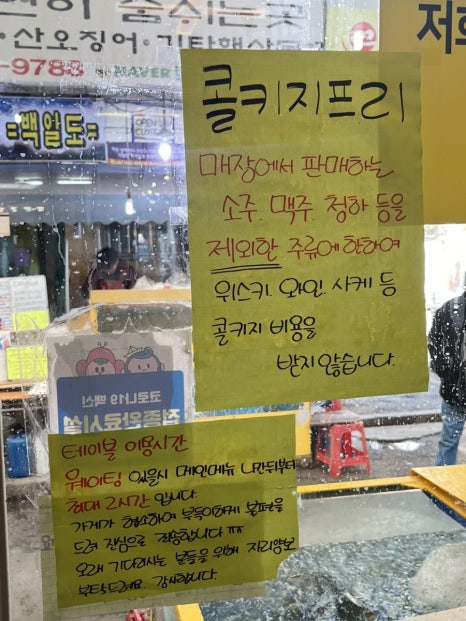 산오징어·기타해산물
-9788
NAVER
백일도
저희
콜키지프리
매장에서 판매하는
소주. 맥주. 청하 등을
제외한 주류에 한하여
위스키. 와인. 사케 등
콜키지 비용을
받지 않습니다.
코로나19 백신
접종완료시설
테이블 이용시간
웨이팅 있을시 메인메뉴 나간뒤부터
최대 2시간 입니다.
가게가 협소하여 부득이하게 불편을
드려 진심으로 죄송합니다 ㅠㅠ
오래 기다리시는 분들을 위해 자리양보
부탁드려요. 감사합니다.